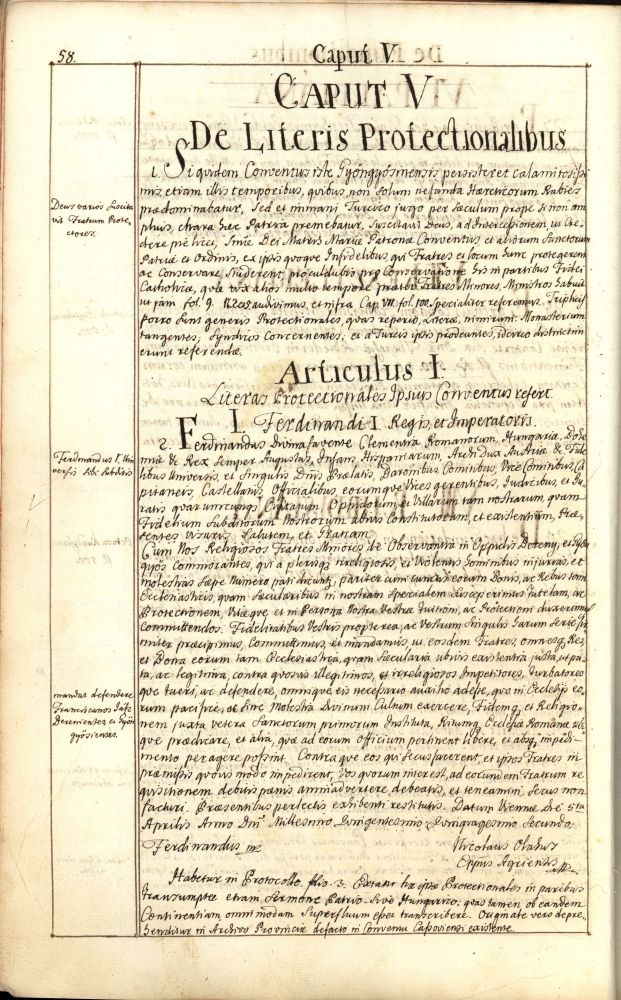 58.
Caput V.
CAPUT V
De Literis Protectionalibus
1. Siquidem Conventus iste Gyöngyösiensis persisteret calamitosissi
mis etiam illis temporibus, quibus non solum nefanda Haereticorum Rabies
praedominabatur, Sed et immani Turcico jugo per saeculum prope si non am
plius, chara haec Patria premebatur, Suscitavit Deus, ad Intercessionem, ut Cre
dere pie licet, Smae Dei Matris Mariae Patronae Conventus et aliorum Sanctorum
Patriae et Ordinis, ex ipsis quoque Infidelibus qui Fratres et locum hunc protegerent
ac Conservare studerent, pro
Catholica, quae vix alios multo tempore praeter Fratres Minores, Ministros habuit
ut jam fol. 9. audivimus, et infra Cap. VII. fol. 100. Specialiter referemus. Triplicis
porro hujus generis Protectionales, quas reperio, Literae, nimirum: Monasterium
tangentes; Syndicos Concernentes; et a Turcis ipsis prodeuntes, idcirco distinctim
erunt referendae.
Deus varios Suscita
vit Fratrum Prote
ctores.
Articulus I.
Literas Protectionales Ipsius Conventus refert.
I. Ferdinandi I. Regis, et Imperatoris.
2. Ferdinandus Divina favente Clementia Romanorum, Hungariae, Bohe
miae &c Rex Semper Augustus, Infans Hispaniarum, Archi Dux Austriae &c Fide
libus Universis, et Singulis Dnis Praelatis, Baronibus, Comitibus, Vice Comitibus, Ca
pitaneis, Castellanis, Officialibus, eorumque Vices gerentibus, Judicibus, et Ju
ratis quarumcunq Civitatum, Oppidorum, et Villarum tam nostrarum, quam
Fidelium Subditorum Nostrorum ubivis Constitutorum, et existentium, Prae
sentes Visuris Salutem, et Gratiam.
Ferdinandus I. Uni
versis Sibi Subditis
Cum Nos Religiosos Fratres Minores de Observantia in Oppidis Szeceny, et Gyön
gyös Commorantes, qui a plerisq irreligiosis, et Violentis hominibus injurias, et
molestias Saepe Numero pati dicunt, pariter cum cunctis eorum Bonis, ac Rebus tam
Ecclesiasticis, quam Saecularibus in nostram Specialem Susceperimus Tutelam, ac
Protectionem, Vosque et in Persona Nostra Vestrae Tuitioni, ac Protectioni duxerimus
Committendos. Fidelitatibus Vestris propterea, ac Vestrum Singulis harum Serie fir
miter praecipimus, Committimus, et mandamus, ut eosdem Fratres, omnesq Res,
et Bona eorum tam Ecclesiastica, quam Saecularia ubivis existentia justa, uti pu
ta, ac legitima, contra quosvis illegitimos, et irreligiosos Impetitores, turbatores
que tueri, ac defendere, omnique eis necessario auxilio adesse, quo in Ecclesijs eo
rum pacifice, ac sine Molestia Divinum Cultum exercere, Fidemq, et Religio
nem juxta vetera Sanctorum primorum Instituta, Ritumq Ecclesiae Romanae
que praedicare, et alia, quae ad eorum officium pertinent libere, et absq impedi
mento peragere possint. Contra que eos qui Secus facerent, et ipsos Fratres in
praemissis quovis modo impedirent, Vos quorum interest, ad eorundem Fratrum re
quisitionem debitis poenis animadvertere debeatis, et teneamini. Secus non
facturi. Praesentibus perlectis exhibenti restitutis. Datum Viennae Die 5ta
Aprilis Anno Dni Millesimo, Quingentesimo, Quingragesimo Secundo.
mandat defendere
Franciscanos
et Gyön
gyösienses.
Ferdinandus mp.
Nicolaus Olahus
Eppus Agriensis mp.
Habetur in Protocollo folio 3. Extant hae ipsae Protectionales in paribus
transumptae etiam Sermone Patrio sive Hungarico; quas tamen ob eandem
Continentiam omnimodam Superfluum esset transcribere. Originale vero depre
henditur in Archivo Provinciae defacto in Conventu Cassoviensi existente.